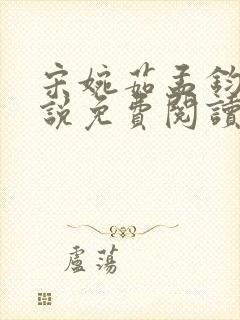 宋婉茹孟鈞
說免費閱讀
盧蕩